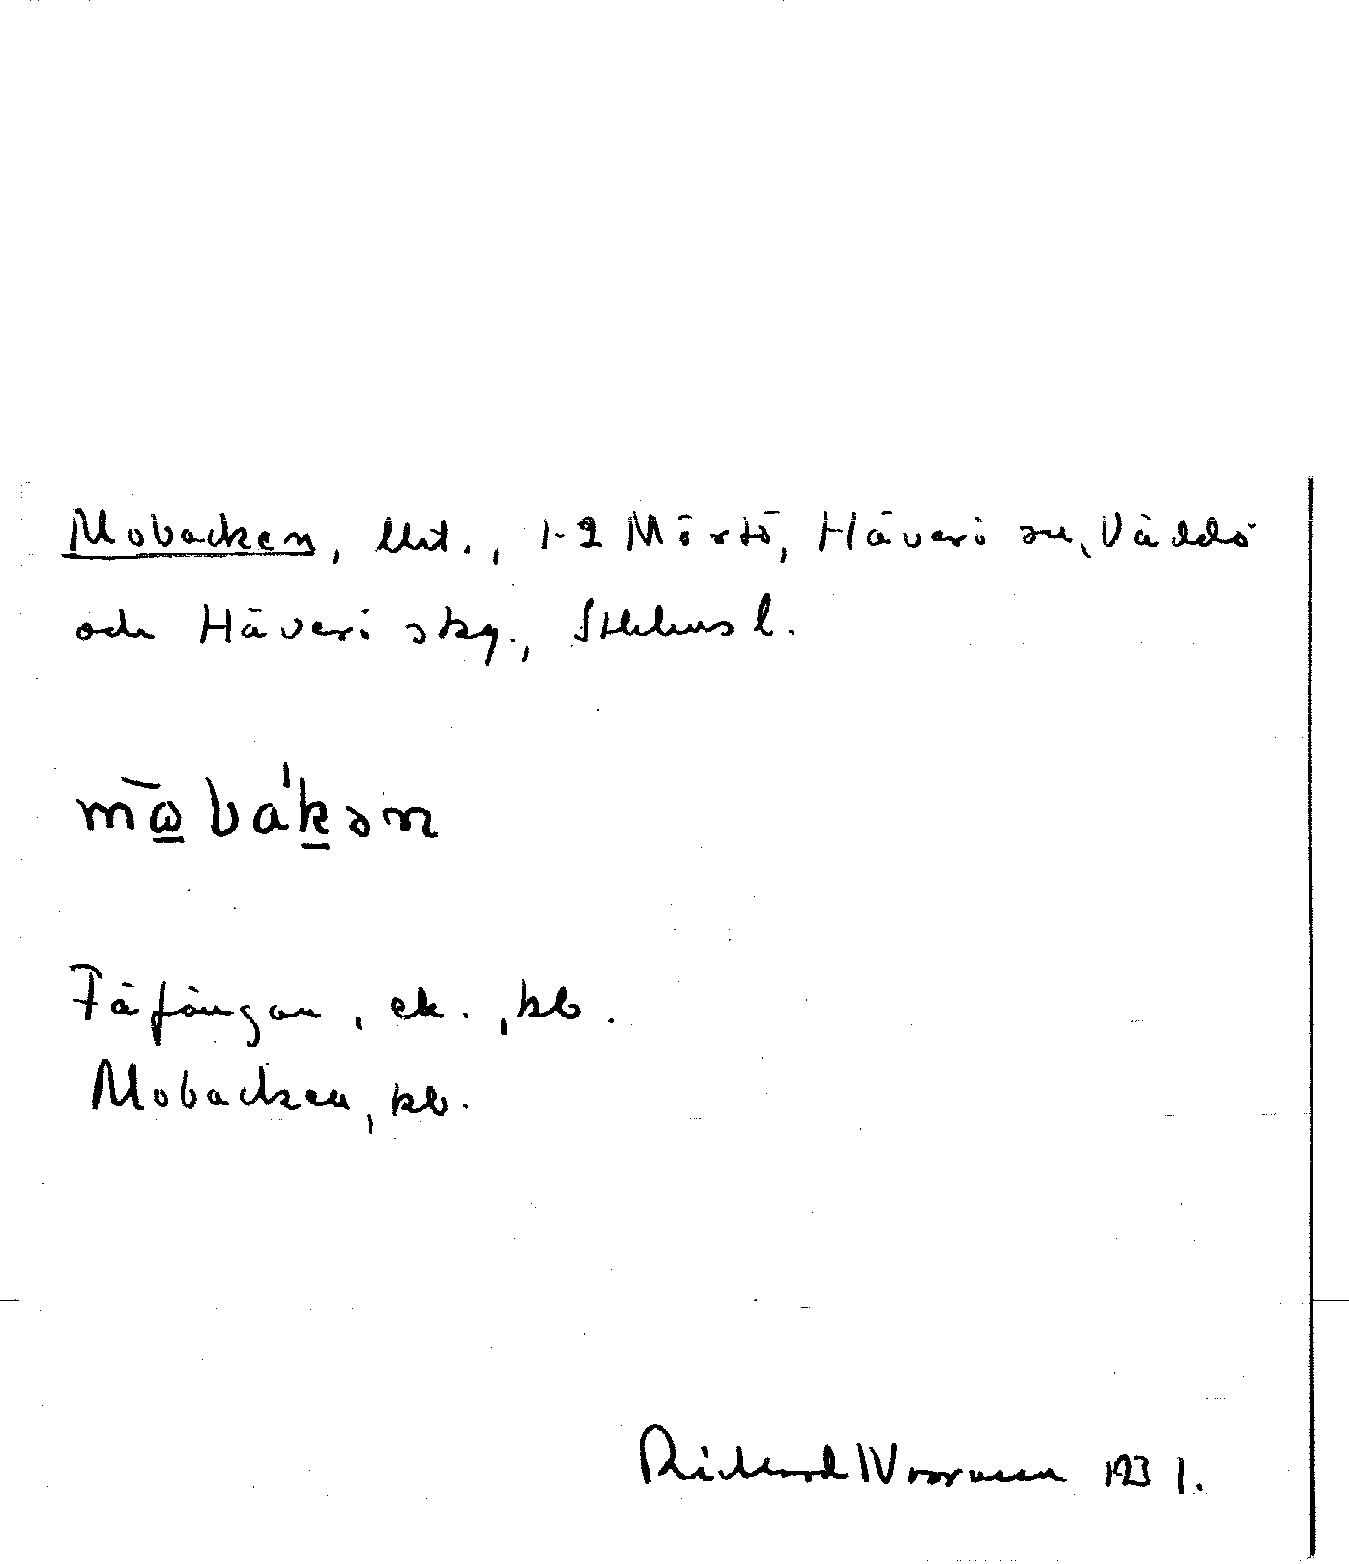 Mobacken, lht., 1-2 Mörtö, Häverö sn, Väddö
och Häverö skg., Sthlms l.
mω̄bákən
Fäfängan, ek., kb.
Mobacken, kb.
Rickard Norrman 1931.